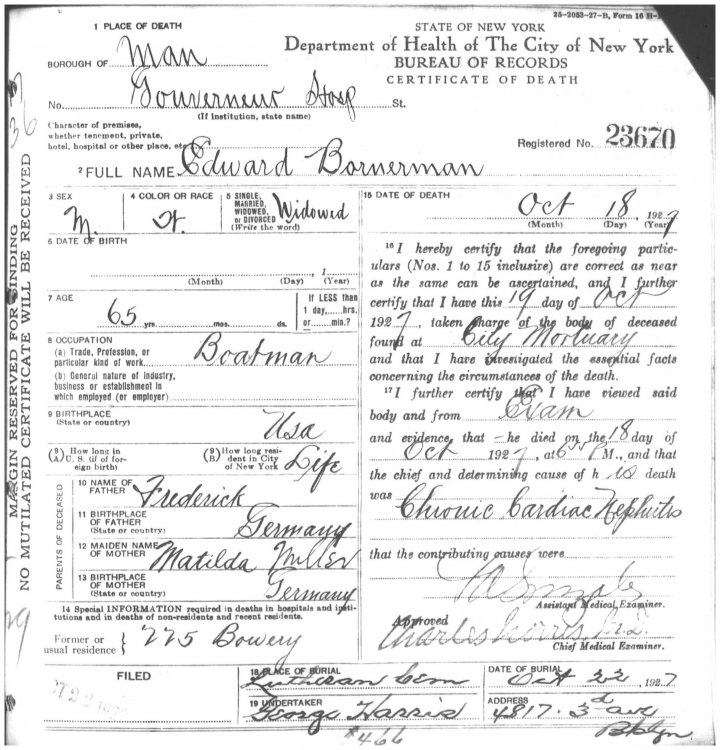 25-2053-27-B, Form 16 H-
1 PLACE OF DEATH
STATE OF NEW YORK
Department of Health of The City of New York
BUREAU OF RECORDS
CERTIFICATE OF DEATH
BOROUGH OF Man
No. Gouverneur Hosp St.
(If institution, state name)
Character of premises,
whether tenement, private,
hotel, hospital or other place, etc.
Registered No. 23670
2 FULL NAME Edward Bornerman
3 SEX M.
4 COLOR OR RACE W.
5 SINGLE, MARRIED, WIDOWED, or DIVORCED (Write the word) Widowed
6 DATE OF BIRTH
(Month) (Day) (Year)
7 AGE
65 yrs. mos. ds.
If LESS than
1 day, hrs.
or min.?
8 OCCUPATION
(a) Trade, Profession, or
particular kind of work Boatman
(b) General nature of Industry,
business or establishment in
which employed (or employer)
9 BIRTHPLACE
(State or country) Usa
(9 A) How long in U. S. (if of foreign birth)
(9 B) How long resident in City of New York Life
PARENTS OF DECEASED
10 NAME OF FATHER Frederick
11 BIRTHPLACE OF FATHER (State or country) Germany
12 MAIDEN NAME OF MOTHER Matilda Miller
13 BIRTHPLACE OF MOTHER (State or country) Germany
14 Special INFORMATION required in deaths in hospitals and institutions
and in deaths of non-residents and recent residents.
Former or
usual residence } 225 Bowery
15 DATE OF DEATH
Oct 18, 1927
(Month) (Day) (Year)
16 I hereby certify that the foregoing particu-
lars (Nos. 1 to 15 inclusive) are correct as near
as the same can be ascertained, and I further
certify that I have this 19 day of Oct
1927, taken charge of the body of deceased
found at City Mortuary
and that I have investigated the essential facts
concerning the circumstances of the death.
17 I further certify that I have viewed said
body and from Exam
and evidence, that he died on the 18 day of
Oct 1927, at M., and that
the chief and determining cause of h is death
was Chronic Cardiac Nephritis
that the contributing causes were
Assistant Medical Examiner.
Approved
Charles Norris M.D.
Chief Medical Examiner.
FILED
18 PLACE OF BURIAL
Lutheran Cem
DATE OF BURIAL
Oct 22, 1927
19 UNDERTAKER
George Harris
#466
ADDRESS
4817-3rd ave
Bklyn
MARGIN RESERVED FOR BINDING
NO MUTILATED CERTIFICATE WILL BE RECEIVED